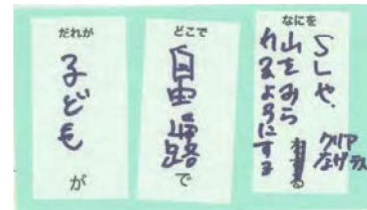 だれが
子ども
が
どこで
自由通路
で
なにを
SLや、
山をみら
れるようにする
クリア